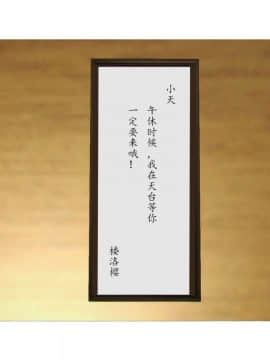 小天
午休时候,我在天台等你
一定要来哦!
楼洛樱